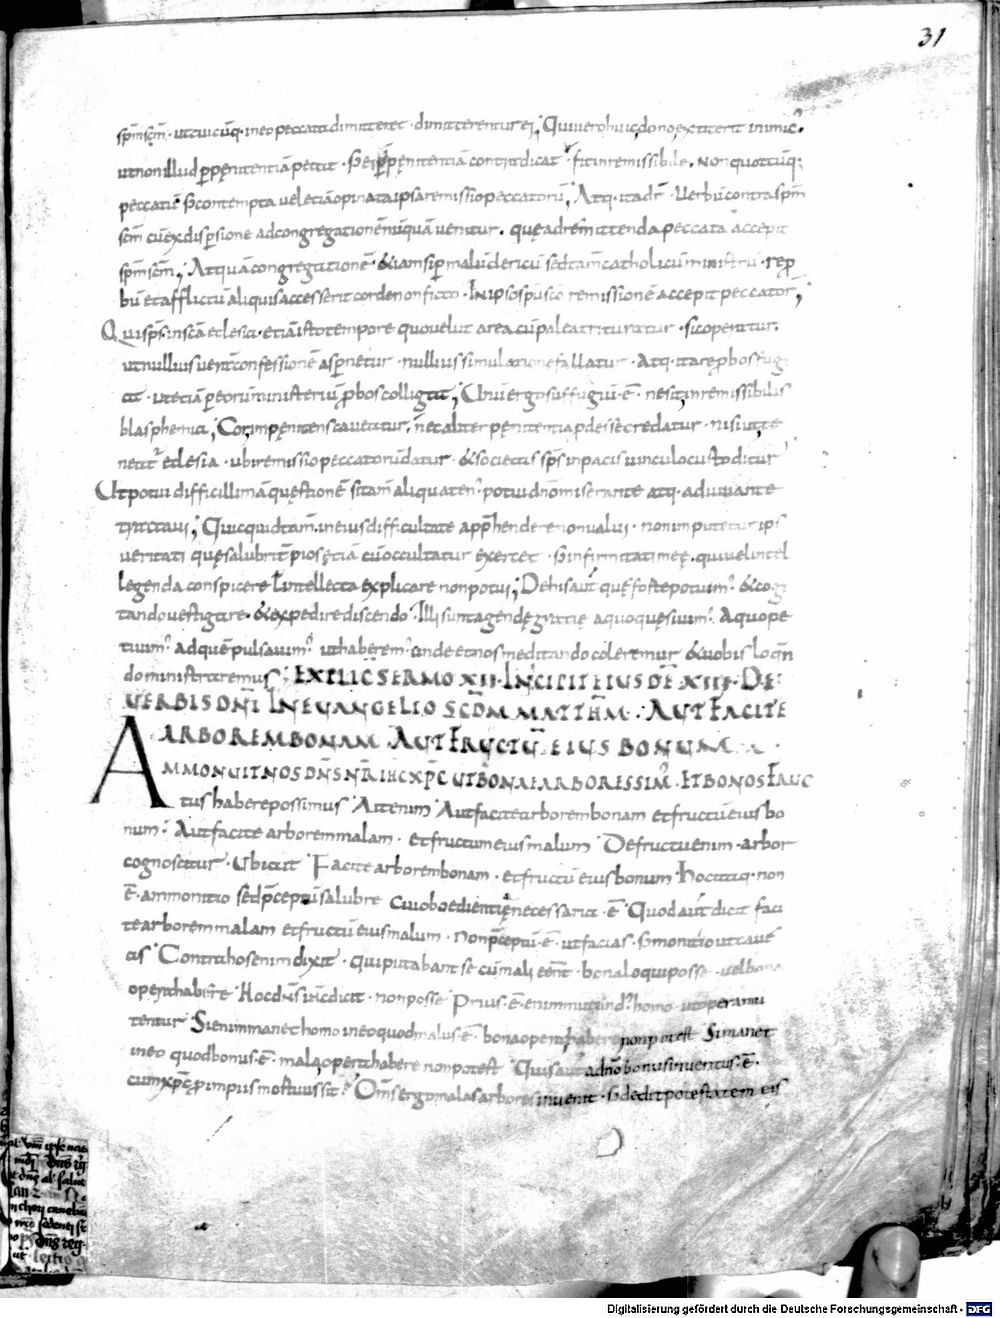 31
sp̅m sc̅m · ut cuicu̅q· in eo peccata dimitteret · dimitterentur ei; Qui vero huic dono extiterit inimic'
ut non illud p̱ pęnitentia̅ petat · S; ei p̱ pęnitentia̅ contradicat · fit inremissibile · Non quodcu̅q;
peccati · s; contempta vel etia̅ oppugnata ipsa remissio peccatoru̅; Atq· ita dr̅ · Verbu̅ contra sp̅m
sc̅m cu̅ ex dispersione ad congregatione̅ nu̅qua̅ venitur · quę ad remittenda peccata accepit
sp̅m sc̅m; At qua̅ congregatione̅ · & iam si p̱ malu̅ clericu̅ sed tam̅ catholicu̅ ministru̅ · rep̱
bu̅ et afflictu̅ aliquis accesserit corde non ficto · In ipso sp̅u sc̅o remissione̅ accepit peccator;
Qui sp̅s in sc̅a eclesia · etia̅ isto tempore quo velut area cu̅ palea trituratur · sic operatur ·
ut nullius vera̅ confessione̅ aspernetur · nullius simulatione fallatur · Atq· ita reprobos fugi
at · ut etia̅ p̱ eoru̅ ministeriu̅ probos colligat; Unu̅ ergo suffugiu̅ · e̅ · ne sit inremissibilis
blasphemia; Cor inpęnitens caveatur · nec aliter pęnitentia prodesse credatur · nisi ut te
neatur eclesia · ubi remissio peccatoru̅ datur · & societas sp̅s in pacis vinculo custoditur
Ut potui difficillima̅ quęstione̅ sitam aliquaten' potui dn̅o miserante atq· adiuvante
tractavi; Quicquid tam̅ in eius difficultate app̅hendere non valui · non imputetur ips
veritati quę salubrit̅ pios etia̅ cu̅ occultatur exercet · S; infirmitati meę · qui vel intel
legenda conspicere l̅ intellecta explicare non potui; De his aut̅ quę forte potuim' · & cogi
tando vestigare · & expedire discendo · Illi sunt agendę gratię a quo quęsivim' · A quo pe
tivim' · ad que̅ pulsavim' ut haberem' unde et nos meditando coleremur & vobis loq̅n
do ministraremus; EXPLIC̅ SERMO XII · INCIPIT EIUSDE̅ XIII · DE
VERBIS DN̅I IN EVANGELIO SCD̅M MATTHM · AUT FACITE
ARBOREM BONAM AUT FRUCTU̅ EIUS BONUM
AMMONUIT NOS DN̅S NR̅ IHC̅ XP̅C UT BONAE ARBORES SIM' · ET BONOS FRUC
tus habere possimus · Ait enim · Aut facite arborem bonam et fructu̅ eius bo
num · Aut facite arborem malam · et fructum eius malum · De fructu enim · arbor
cognoscitur · Ubi ait · Facite arborem bonam · et fructu̅ eius bonum · Hoc utiq· non
e̅ · ammonitio sed p̅ceptu̅ salubre cui oboedientię necessaria · e̅ · Quod aut̅ dicit faci
te arborem malam et fructu̅ eius malum · Non p̅ceptu̅ · e̅ · ut facias · s; monitio ut cave
as · Contra hos enim dixit · qui putabant se cum mali eent̅ · bona loqui posse · vel bona
opera habere · Hoc dn̅s ih̅c dicit · non posse · Prius · e̅ · enim mutand' homo · ut opera mu
tentur · Si enim manet homo in eo quod malus · e̅ · bona opera habere non potest · Si manet
in eo quod bonus · e̅ · mala opera habere non potest · Quis aut̅ a dn̅o bonus inventus · e̅ ·
cum xp̅c pro impiis mortuus sit? Om̅s ergo malas arbores invenit · s; dedit potestatem eis
Digitalisierung gefördert durch die Deutsche Forschungsgemeinschaft - DFG